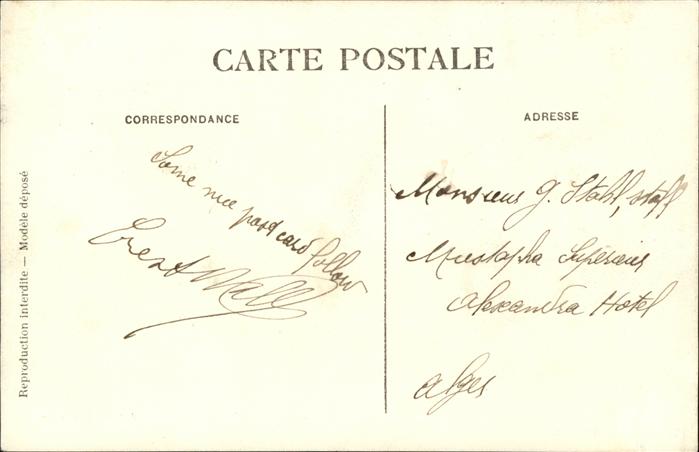 CARTE POSTALE
CORRESPONDANCE
ADRESSE
Reproduction interdite — Modèle déposé
Some nice post card follow
Monsieur G. Stahl, staff
Mustapha Superieur
Alexandra Hotel
Alger